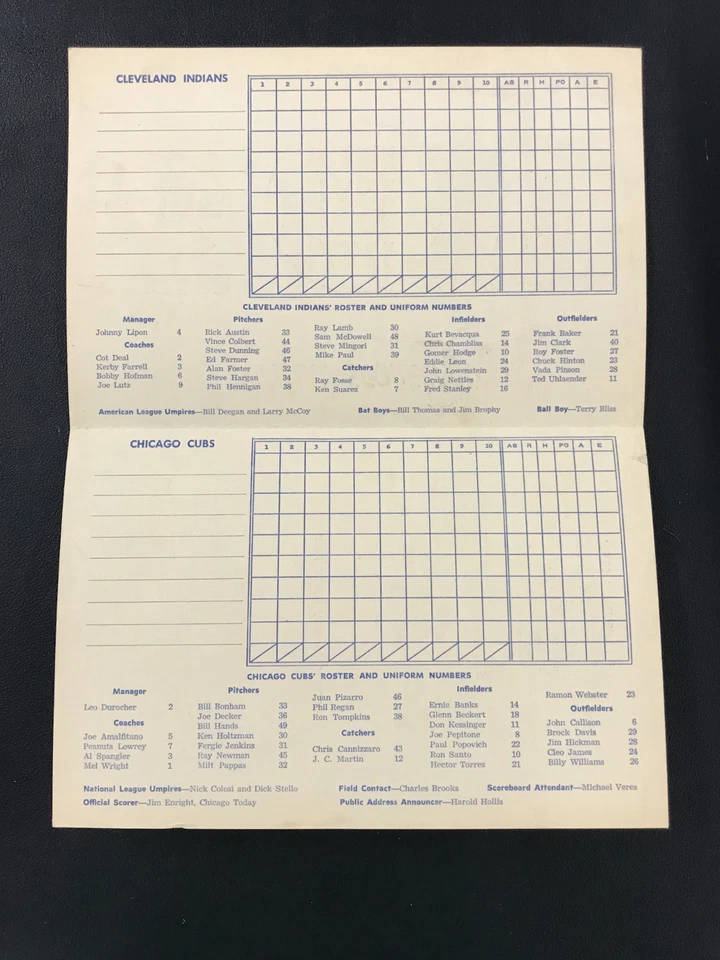 CLEVELAND INDIANS
1 2 3 4 5 6 7 8 9 10 AB R H PO A E
CLEVELAND INDIANS' ROSTER AND UNIFORM NUMBERS
Manager
Johnny Lipon 4
Coaches
Cot Deal 2
Kerby Farrell 3
Bobby Hofman 6
Joe Lutz 9
Pitchers
Rick Austin 33
Vince Colbert 44
Steve Dunning 46
Ed Farmer 47
Alan Foster 32
Steve Hargan 34
Phil Hennigan 38
Ray Lamb 30
Sam McDowell 48
Steve Mingori 31
Mike Paul 39
Catchers
Ray Fosse 8
Ken Suarez 7
Infielders
Kurt Bevacqua 25
Chris Chambliss 14
Gomer Hodge 10
Eddie Leon 24
John Lowenstein 29
Graig Nettles 12
Fred Stanley 16
Outfielders
Frank Baker 21
Jim Clark 40
Roy Foster 27
Chuck Hinton 23
Vada Pinson 28
Ted Uhlaender 11
American League Umpires—Bill Deegan and Larry McCoy
Bat Boys—Bill Thomas and Jim Brophy
Ball Boy—Terry Bliss
CHICAGO CUBS
1 2 3 4 5 6 7 8 9 10 AB R H PO A E
CHICAGO CUBS' ROSTER AND UNIFORM NUMBERS
Manager
Leo Durocher 2
Coaches
Joe Amalfitano 5
Peanuts Lowrey 7
Al Spangler 3
Mel Wright 1
Pitchers
Bill Bonham 33
Joe Decker 36
Bill Hands 49
Ken Holtzman 30
Fergie Jenkins 31
Ray Newman 45
Milt Pappas 32
Juan Pizarro 46
Phil Regan 27
Ron Tompkins 38
Catchers
Chris Cannizzaro 43
J. C. Martin 12
Infielders
Ernie Banks 14
Glenn Beckert 18
Don Kessinger 11
Joe Pepitone 8
Paul Popovich 22
Ron Santo 10
Hector Torres 21
Ramon Webster 23
Outfielders
John Callison 6
Brock Davis 29
Jim Hickman 28
Cleo James 24
Billy Williams 26
National League Umpires—Nick Colosi and Dick Stello
Field Contact—Charles Brooks
Scoreboard Attendant—Michael Veres
Official Scorer—Jim Enright, Chicago Today
Public Address Announcer—Harold Hollis